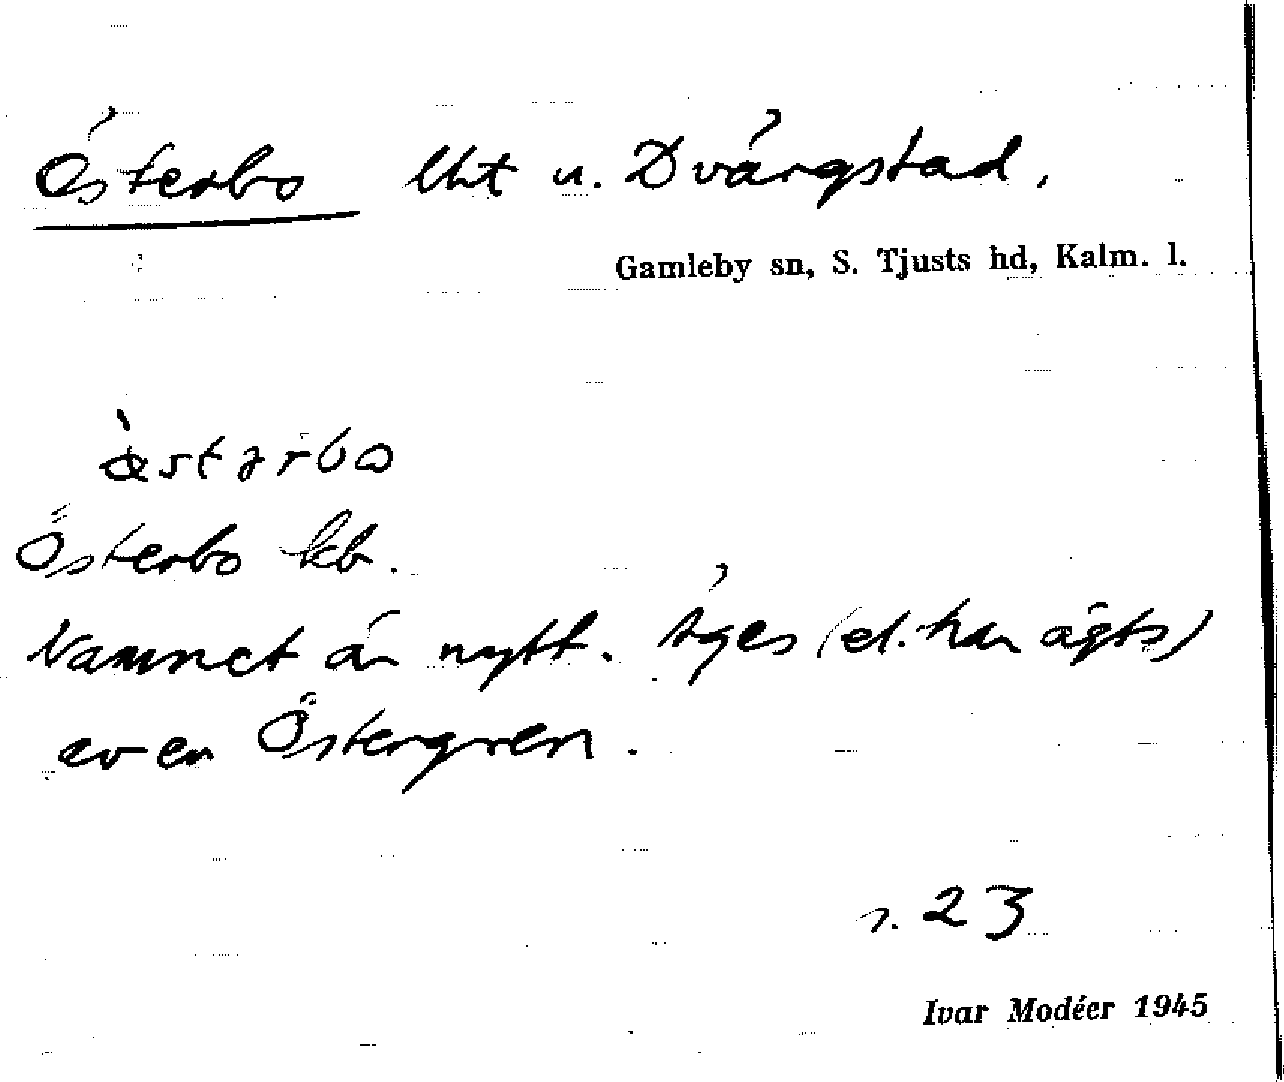 Österbo lht u. Dvärgstad,
Gamleby sn, S. Tjusts hd, Kalm. l.
Österbo kb.
Namnet är nytt. Äges (el. har ägts)
av en Östergren.
s. 23
Ivar Modéer 1945